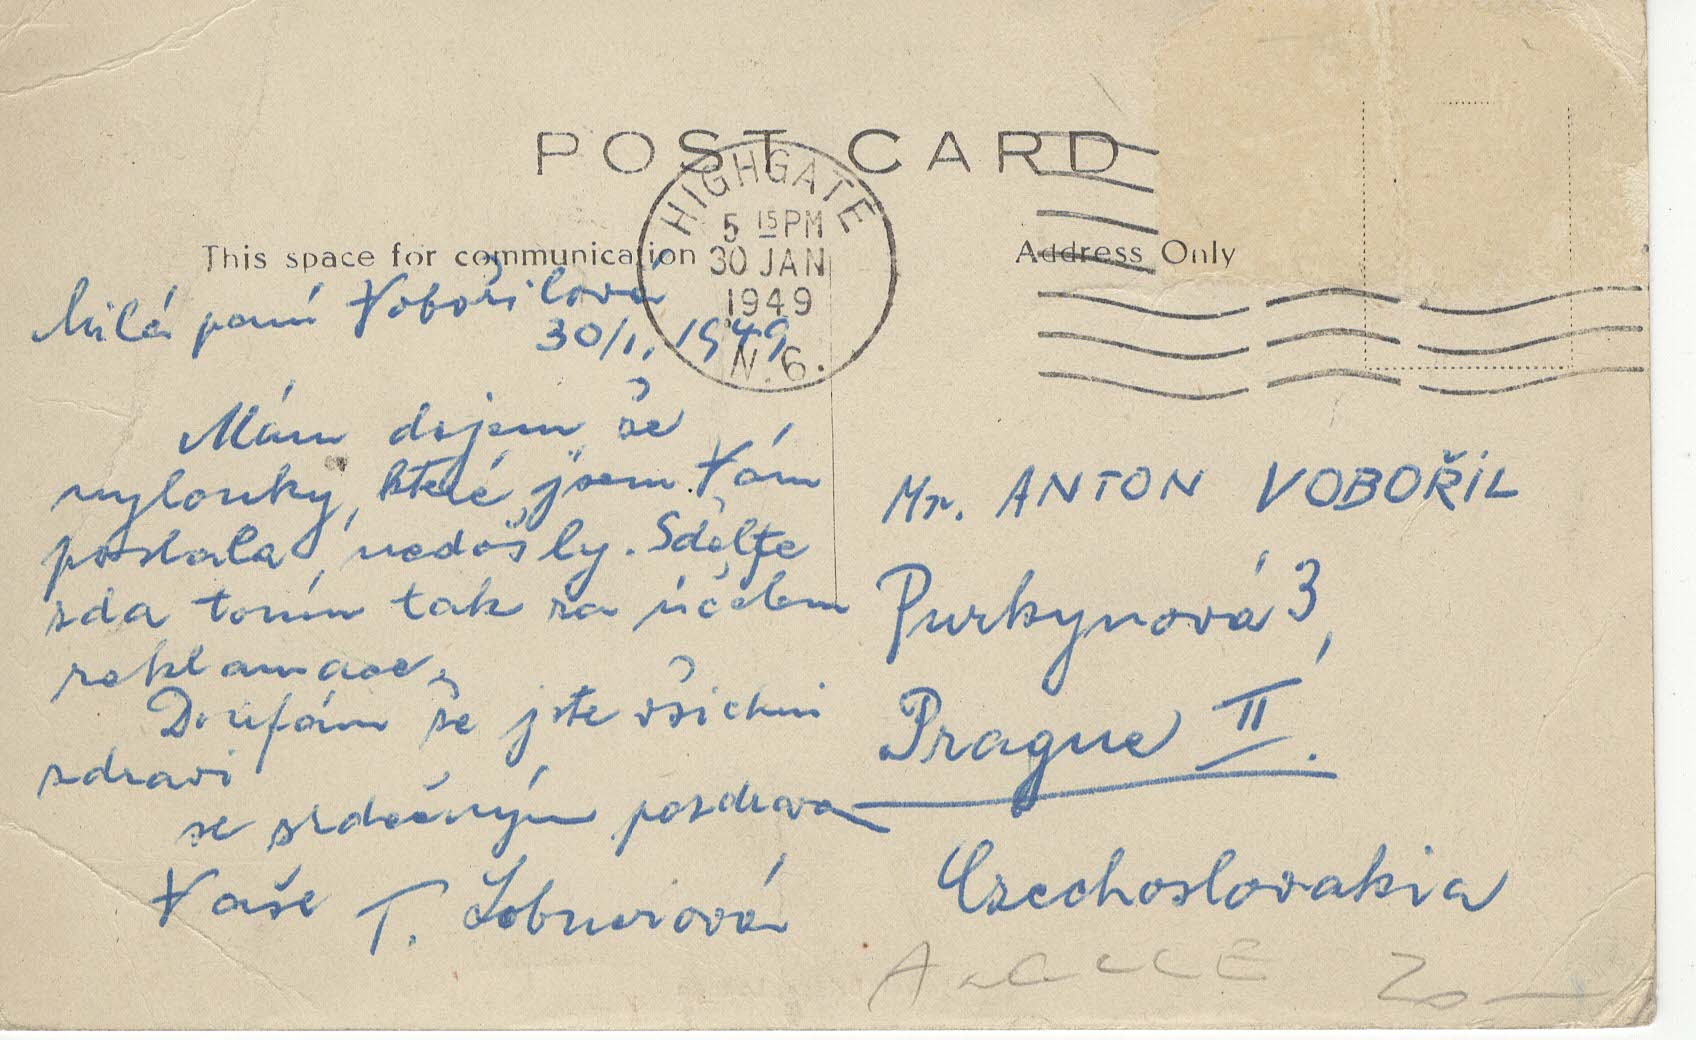 POST CARD
HIGHGATE
5 15 PM
30 JAN
1949
N. 6.
This space for communication
Address Only
Milá paní Vobořilová
30/1, 1949
Mám dojem, že
nylonky, které jsem Vám
poslala, nedošly. Sdělte
zda tomu tak za účelem
reklamace.
Doufám že jste všichni
zdraví
se srdečným pozdravem
Vaše T.
Mr. ANTON VOBOŘIL
Purkynová 3,
Prague II.
Czechoslovakia